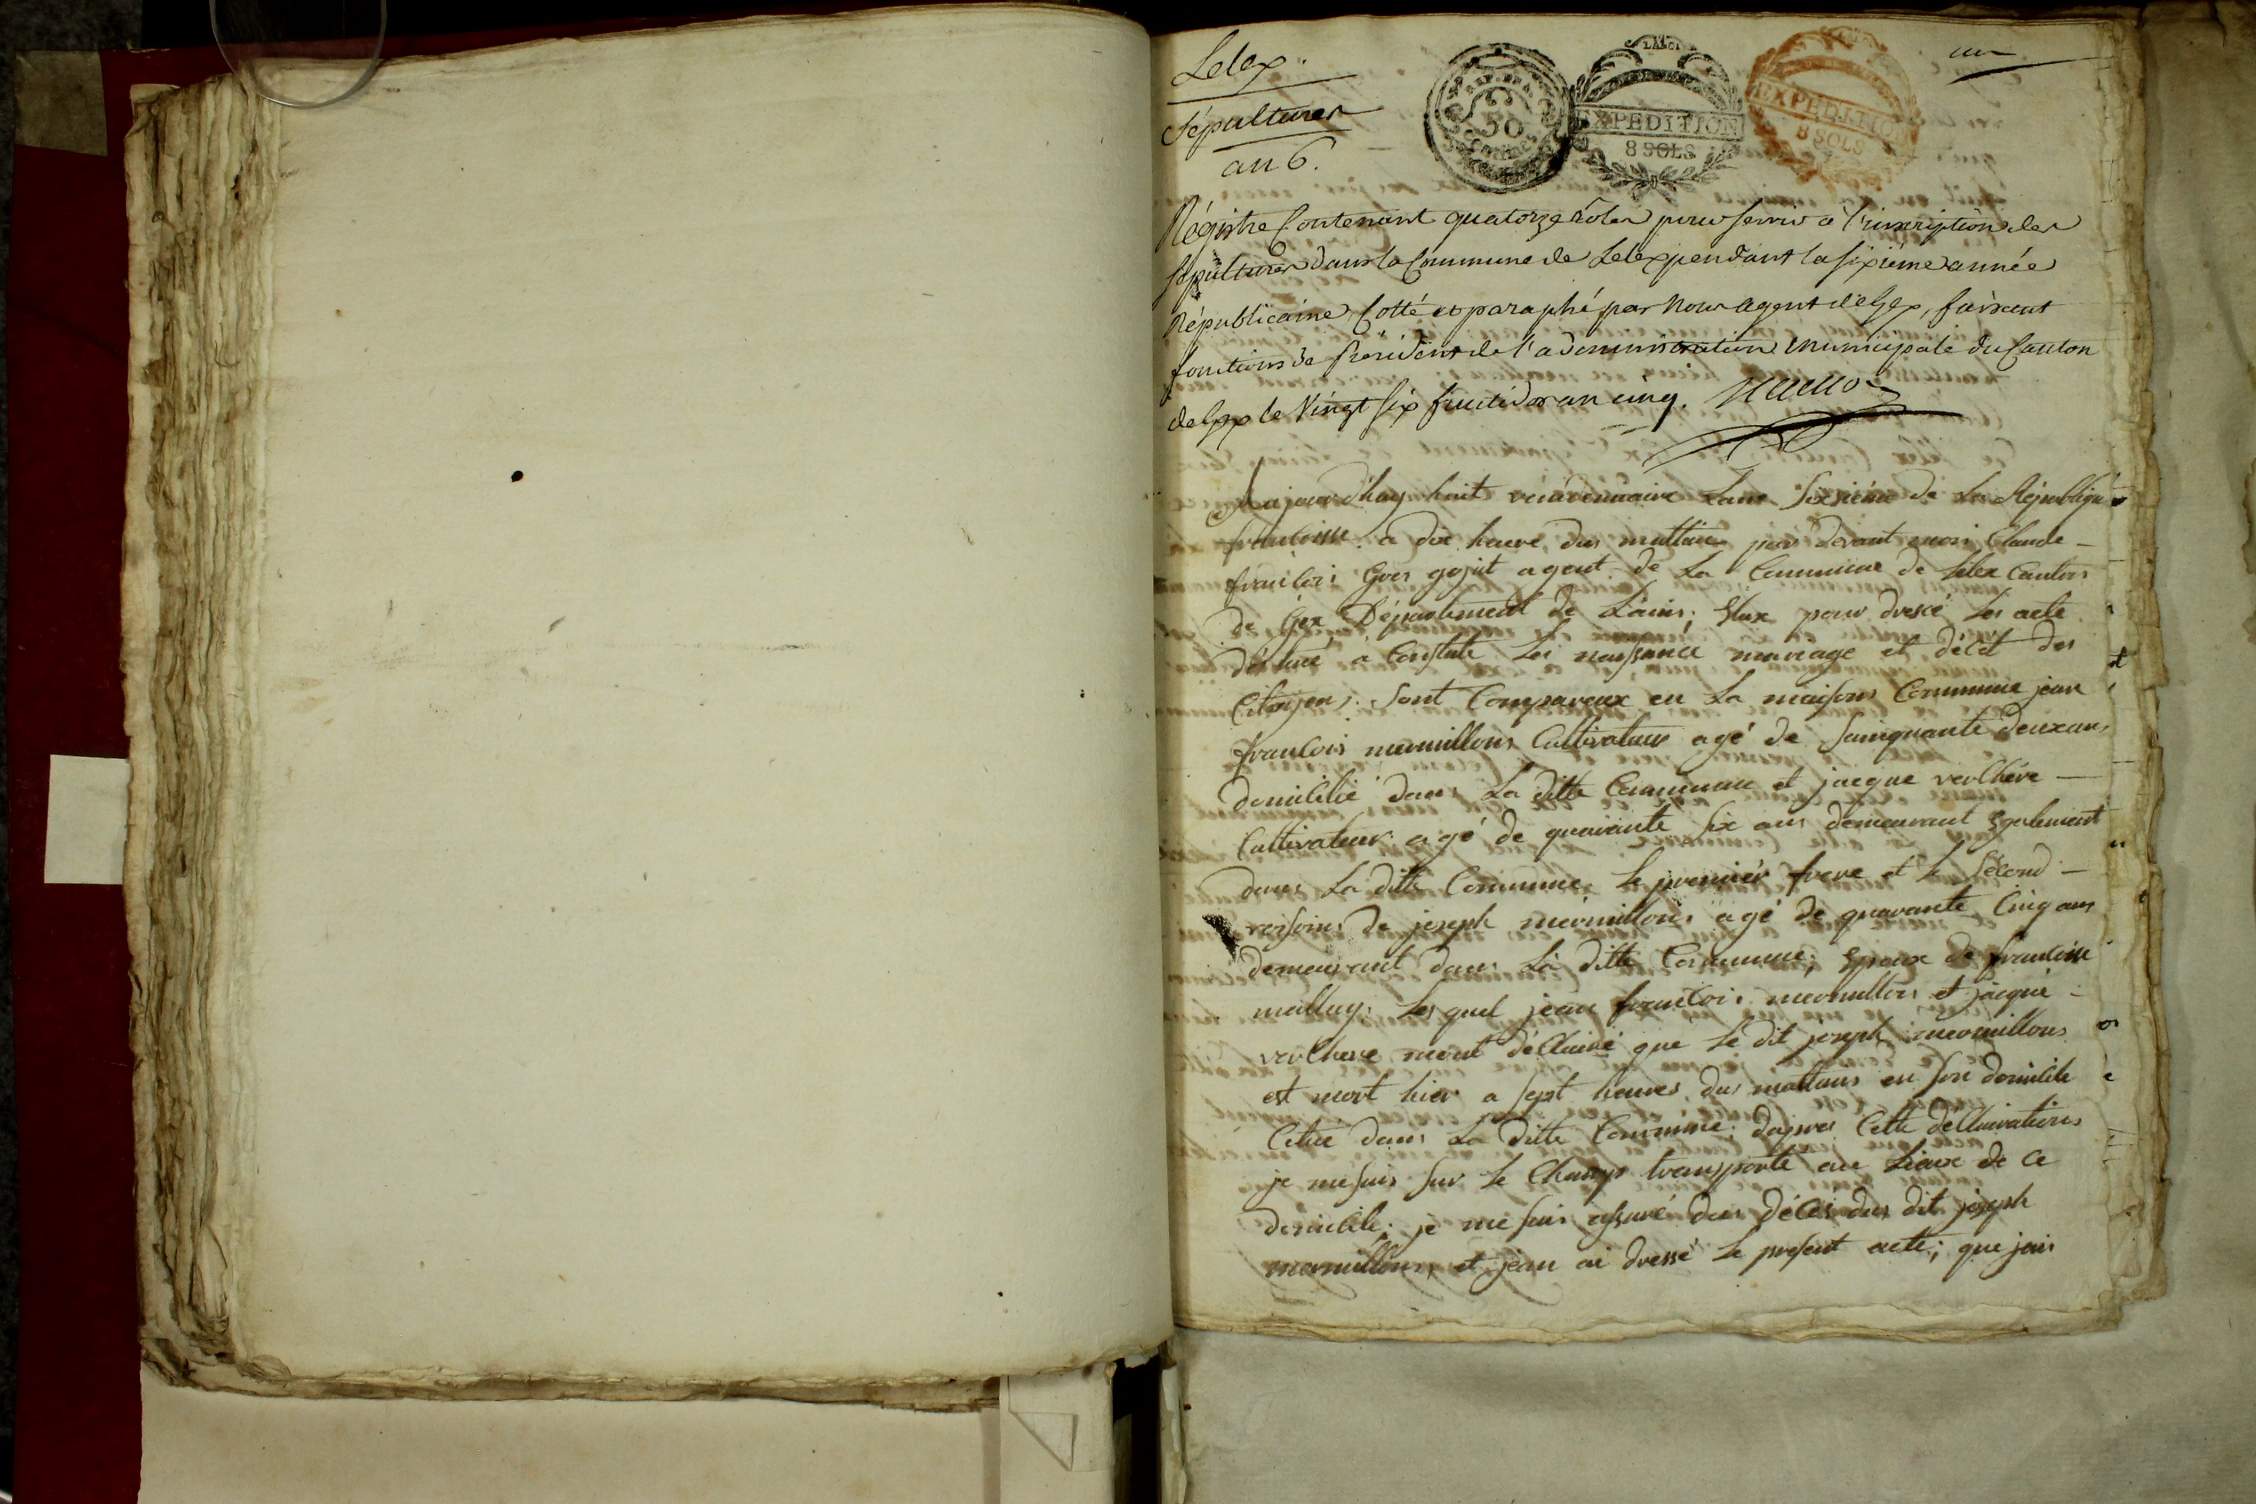 Lelex.
un
Sépultures
an 6.
LA LOI
50
Centimes
EXPEDITION
8 SOLS
EXPEDITION
8 SOLS
Régistre Contenant quatorze rôles pour servir a l'inscription des
Sépultures dans la Commune de Lelex pendant la sixième année
Républicaine, Cotté et paraphé par Nous agent de Gex, faisant
fonctions de Président de l'administration Municipale du Canton
de Gex le Vingt six fructidor an cinq.
Aujourd'huy huit vendémiaire Lans sixième de La République
francoise a dix heure dus mattins par devant moi Claude
francois Gros gojut agent de La Commune de Lelex Canton
de Gex Département de Lains, Elux pour dressé Les acte
déstiné a Constaté Les naissance mareage et décet des
Citoyens. Sont Comparaux en La maisons Commune jean
francois mermillons Cultivateur agé de sainquante deux ans
domicilié dans La ditte Commune et jacque verlhere
Cultivateur agé de quarante six ans demeurant Egalement
dans La ditte Commune Le premiér frere et le sécond
voisoins de joseph mermillons agé de quarante Cinq ans
demeurant dans La ditte Commune, Epoux de francoise
mallay. Les quel jean francois mermillons et jacque
verlhere mont déClairé que Le dit joseph mermillons
est mort hier a sept heures dus mattins en son domicile
Citué dans La ditte Commune. dapres Cette déClairations
je me suis sur le Champs transporté au Lieux de ce
domicile. je me suis assuré dus déCés dus dit joseph
mermillons, et jean ai dressé Le present acte; que jais